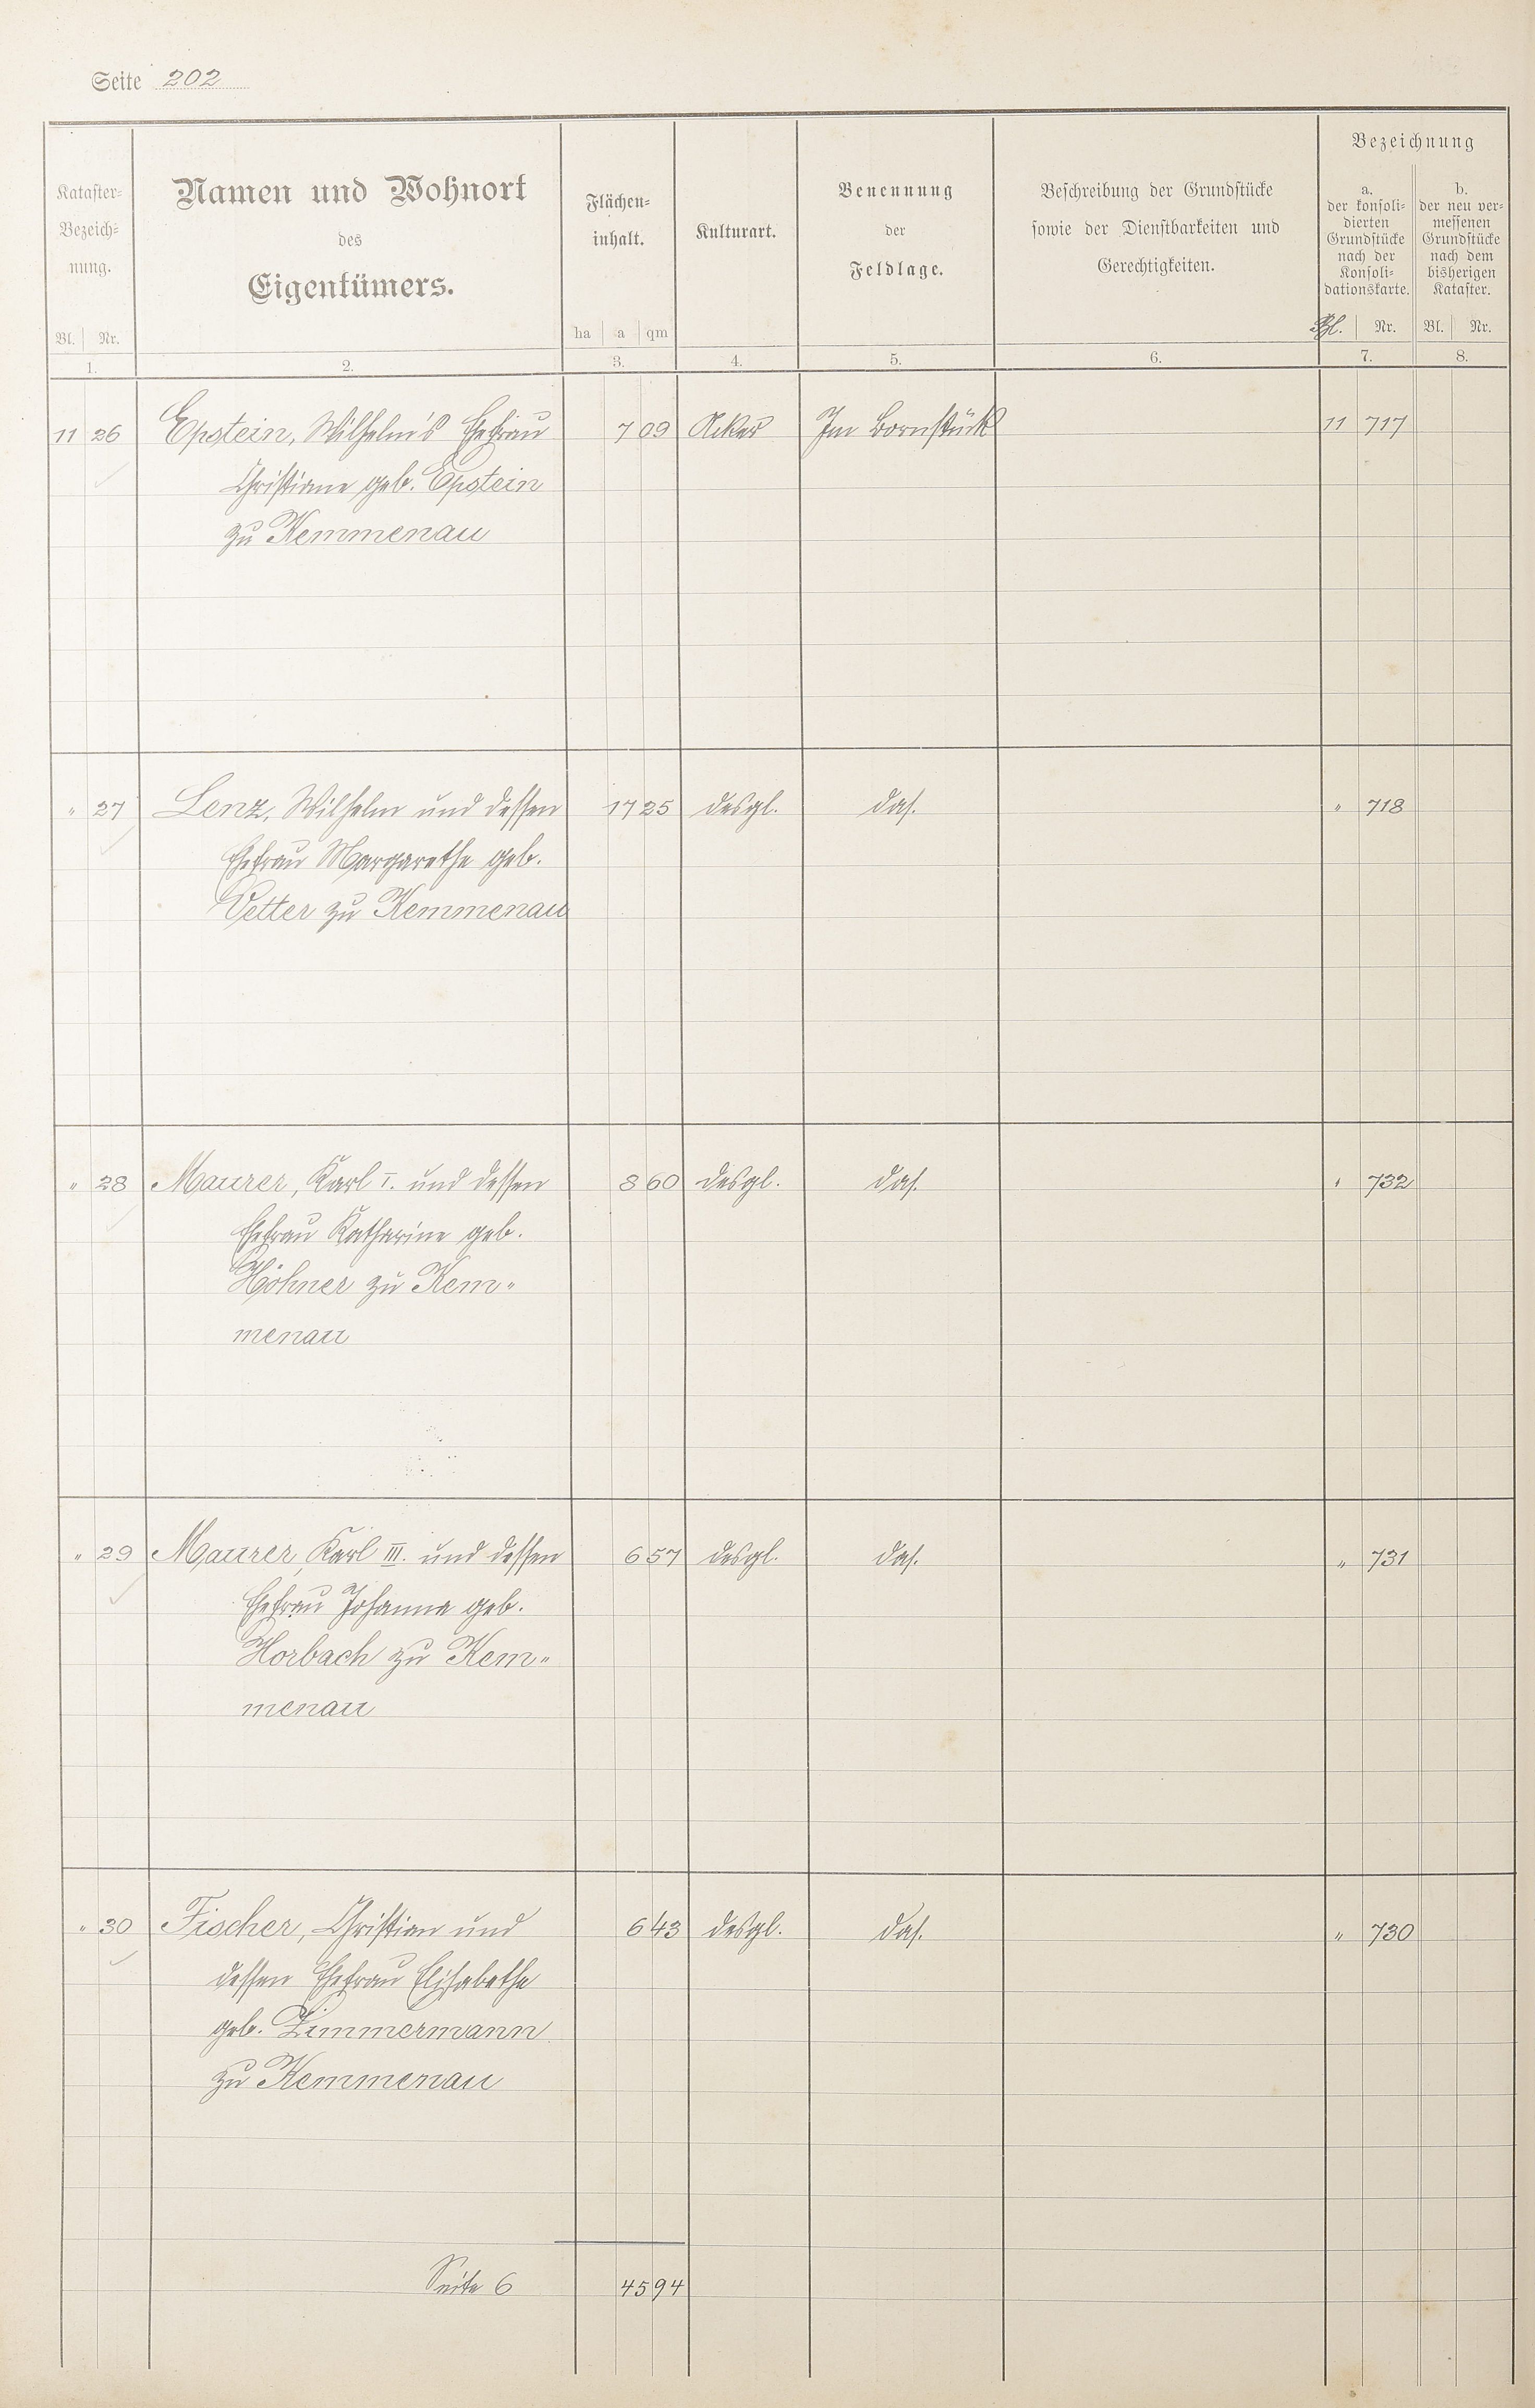 Seite 202
Kataster-
Bezeich-
nung.
Bl. Nr.
1.
Namen und Wohnort
des
Eigentümers.
2.
Flächen-
inhalt.
ha a qm
3.
Kulturart.
4.
Benennung
der
Feldlage.
5.
Beschreibung der Grundstücke
sowie der Dienstbarkeiten und
Gerechtigkeiten.
6.
Bezeichnung
a.
der konsoli-
dierten
Grundstücke
nach der
Konsoli-
dationskarte.
Bl. Nr.
7.
b.
der neu ver-
messenen
Grundstücke
nach dem
bisherigen
Kataster.
Bl. Nr.
8.
11 26 Epstein, Wilhelm's Ehefrau 7 09 Acker Im Bornstück 11 717
Christiane geb. Epstein
zu Kemmenau
" 27 Lenz, Wilhelm und dessen 17 25 desgl. das. " 718
Ehefrau Margarethe geb.
Vetter zu Kemmenau
" 28 Maurer, Karl I. und dessen 8 60 desgl. das. " 732
Ehefrau Katharine geb.
Höhner zu Kem-
menau
" 29 Maurer, Karl III. und dessen 6 57 desgl. das. " 731
Ehefrau Johanna geb.
Horbach zu Kem-
menau
" 30 Fischer, Christian und 6 43 desgl. das. " 730
dessen Ehefrau Elisabethe
geb. Zimmermann
zu Kemmenau
Seite 6 45 94